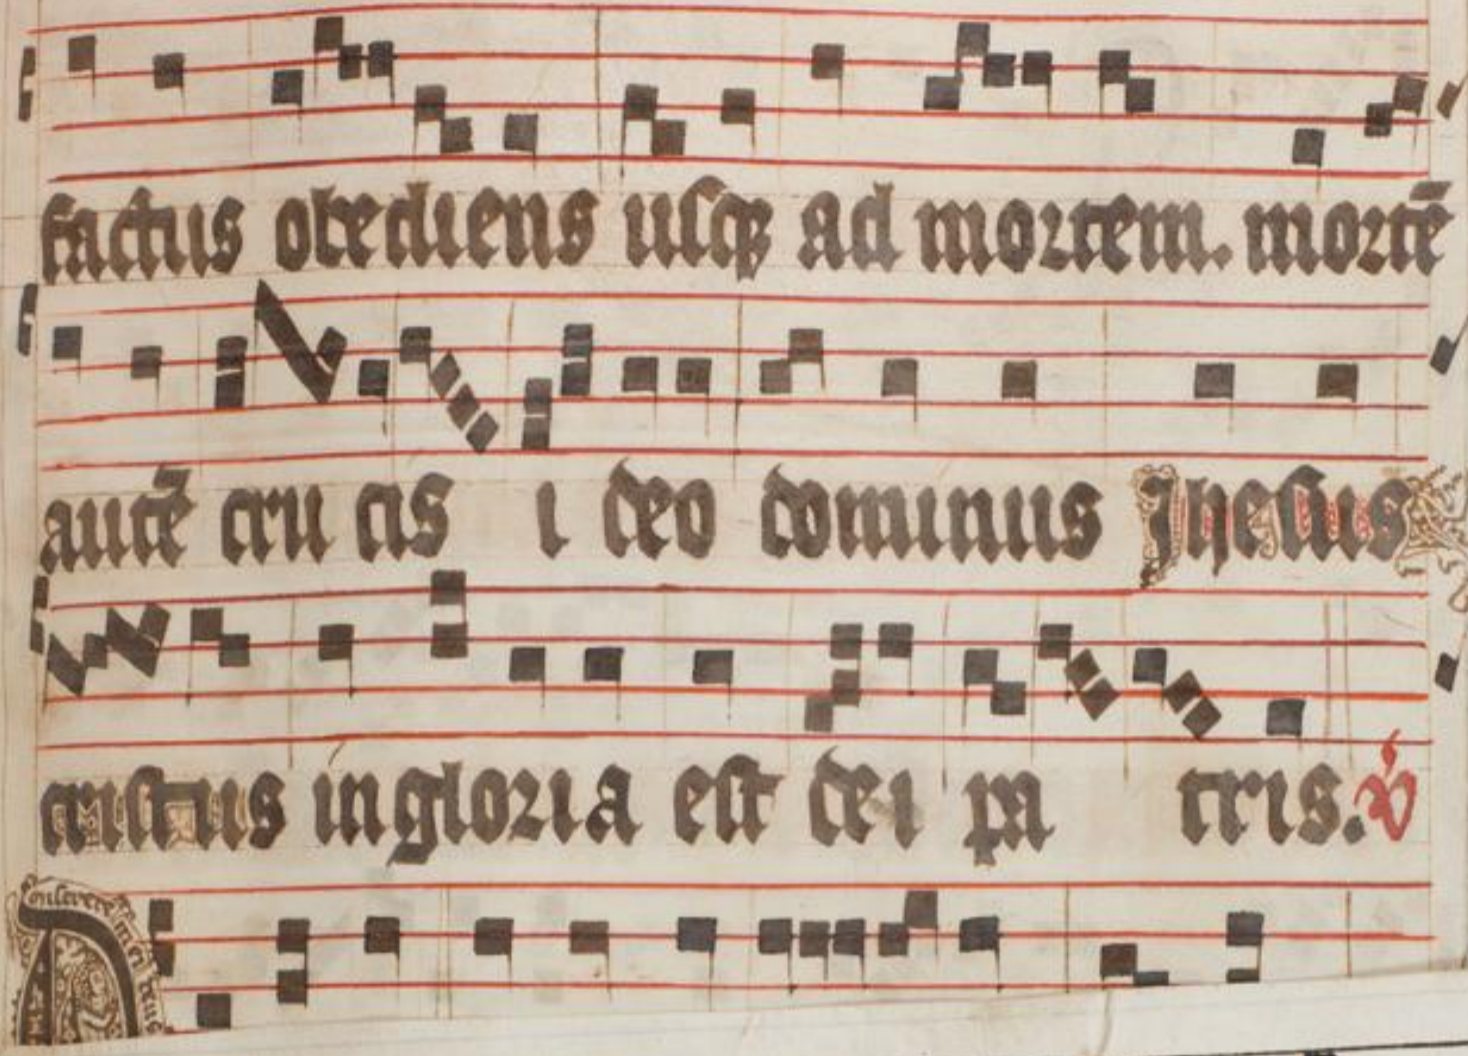 factus obediens usqꝫ ad mortem. mortē
autē cru cis i deo dominus Jhesus
cristus in gloria est dei pa tris. ℣